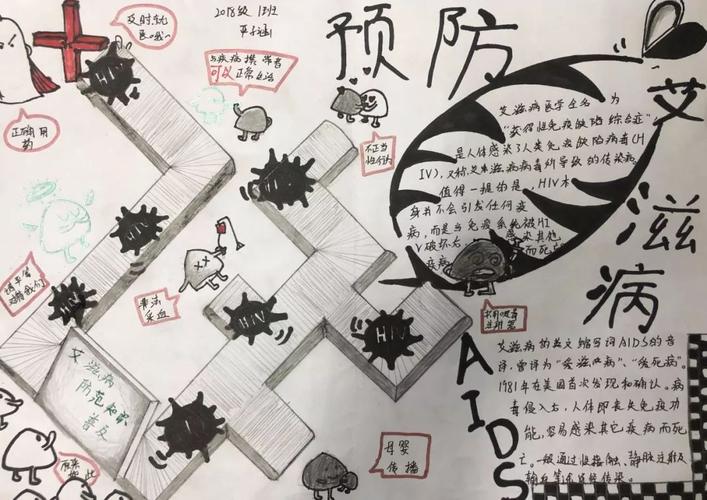 2018级 13班
预防
艾滋病
AIDS
及时就
医哦~
正确用
药
与疾病携带者
可以正常生活
不正当
性行为
请平等
对待我们
非法
采血
共用吸毒
注射器
母婴
传播
原来
如此
艾滋病
防范知识
普及
HIV
HIV
HIV
HIV
HIV
HIV
HIV
艾滋病医学全名为
"获得性免疫缺陷综合症"
是人体感染了人类免疫缺陷病毒(H
IV),又称艾滋病病毒所导致的传染病
值得一提的是,HIV本
身并不会引发任何疫
病,而是当免疫系统被HI
V破坏后
感染其他
疾病
而死亡
艾滋病的英文缩写词AIDS的音
译,曾译为"爱滋病"、"爱死病"。
1981年在美国首次发现和确认。病
毒侵入后,人体即丧失免疫功
能,容易感染其它疾病而死
亡。一般通过性接触、静脉注射及
输血等途径传染。